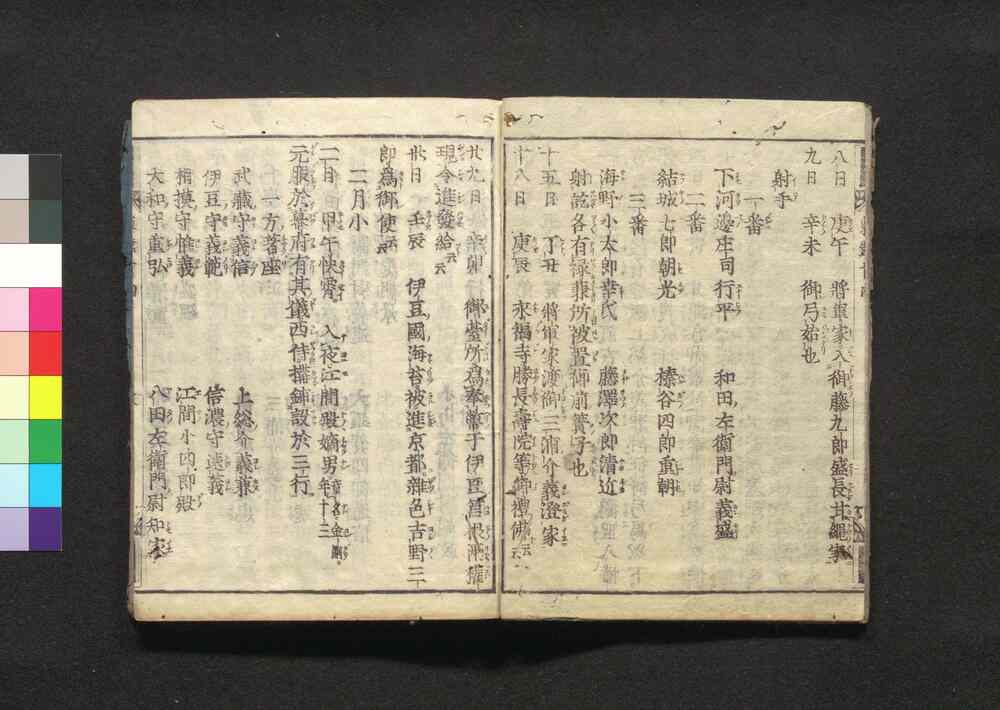 八日　庚午　將軍家入御藤九郎盛長甘繩家
九日　辛未　御弓始也
射手
一番
下河邊庄司行平　和田左衞門尉義盛
二番
結城七郎朝光　榛谷四郎重朝
三番
海野小太郎幸氏　藤澤次郎清近
射訖各有祿兼所被置御前簀子也
十五日　丁丑　將軍家渡御三浦介義澄家
十八日　庚辰　永福寺勝長壽院等御禮佛云云
廿九日　辛卯　御臺所爲奉幣于伊豆筥根兩權
現令進發給云云
卅日　壬辰　伊豆國海苔被進京都雜色吉野三
郎爲御使云云
二月小
二日　甲午快霽　入夜江間殿嫡男童名金剛年十三
元服於幕府有其儀西侍搆鋪設於三行
一方著座
武藏守義信　上總介義兼
伊豆守義範　信濃守遠義
相摸守惟義　江間小四郎殿
大和守重弘　八田左衞門尉知家